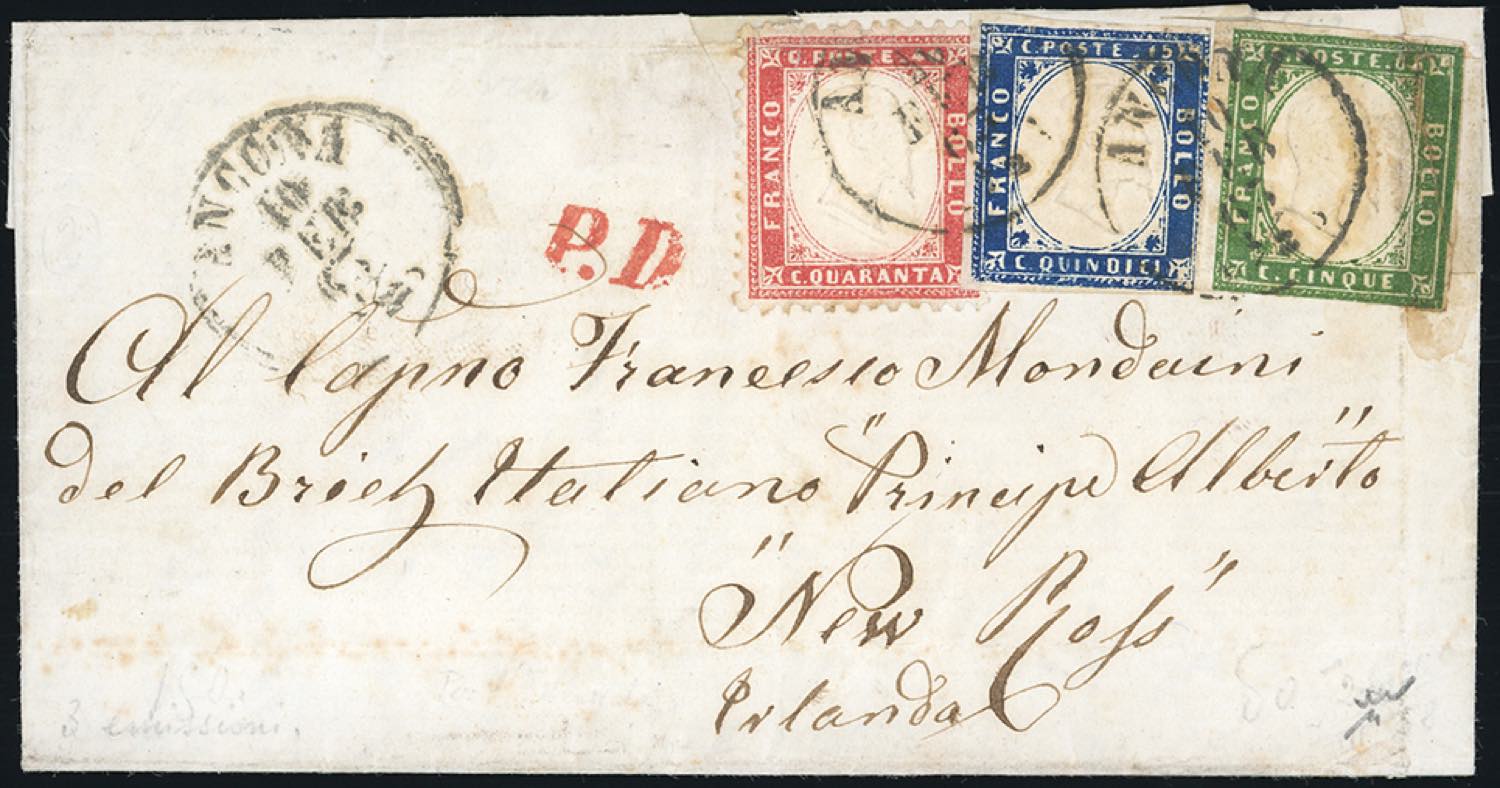 C. POSTE
FRANCO
BOLLO
C. QUARANTA
C. POSTE 15
FRANCO
BOLLO
C. QUINDICI
C. POSTE
FRANCO
BOLLO
C. CINQUE
ANCONA
10
P.D
Al Capno Francesco Mondaini
del Brich Italiano "Principe Alberto"
"New Ross"
Irlanda
3 emissioni.